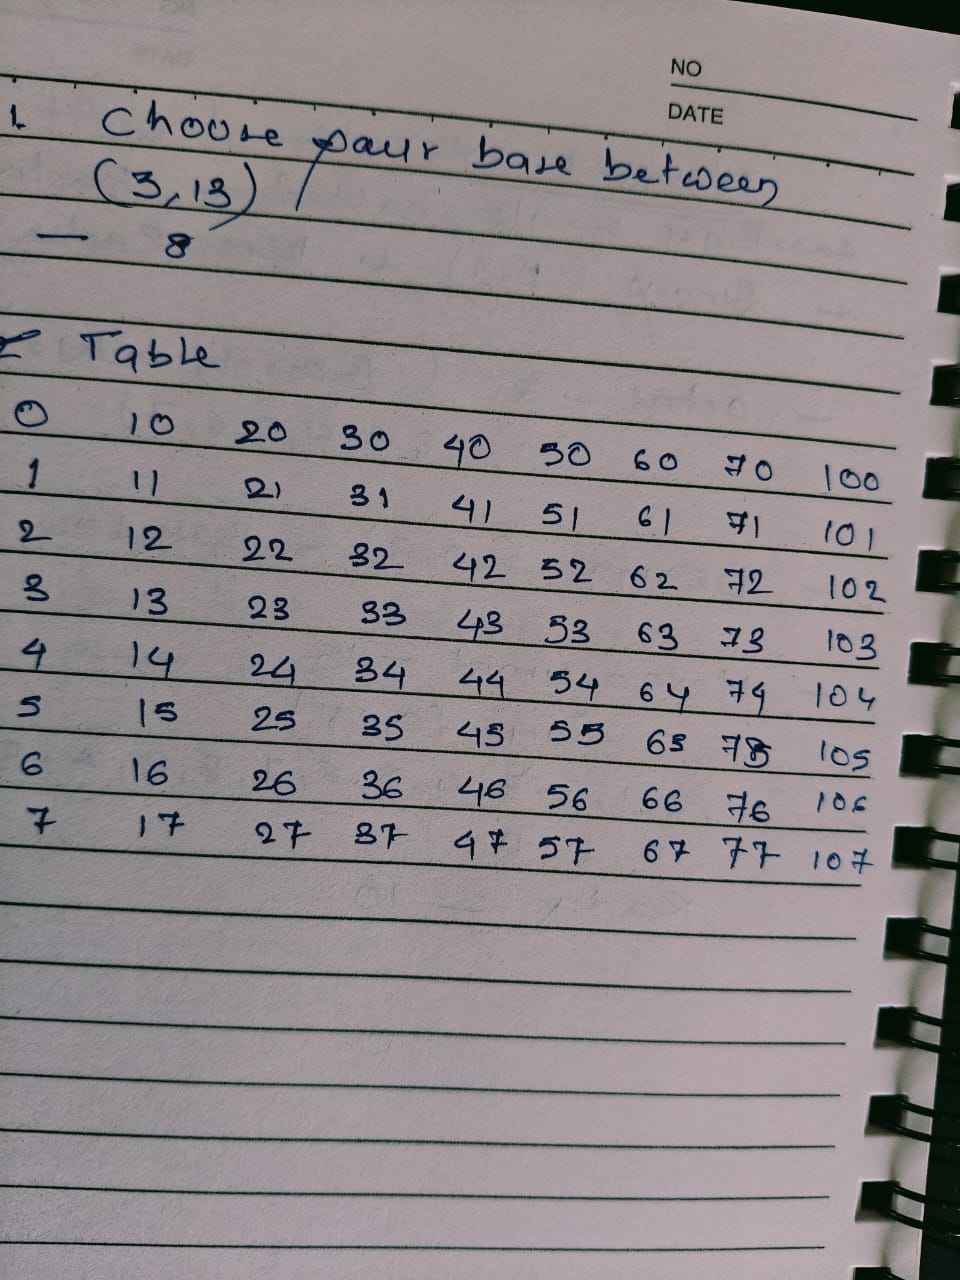 NO
DATE
1. Choose paur base between
(3,13)
— 8
Table
0 10 20 30 40 50 60 70 100
1 11 21 31 41 51 61 71 101
2 12 22 32 42 52 62 72 102
3 13 23 33 43 53 63 73 103
4 14 24 34 44 54 64 74 104
5 15 25 35 45 55 65 75 105
6 16 26 36 46 56 66 76 106
7 17 27 37 47 57 67 77 107